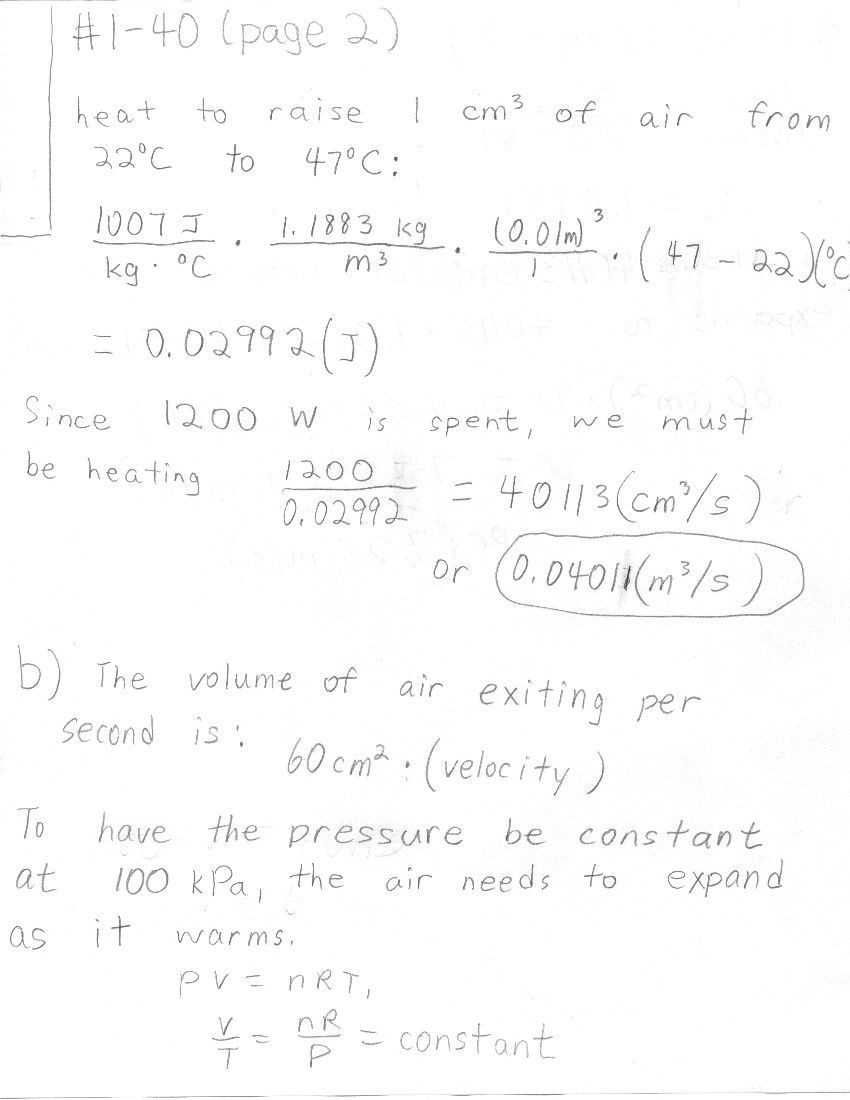 #1-40 (page 2)
heat to raise 1 cm³ of air from
22°C to 47°C:
1007 J / kg · °C · 1.1883 kg / m³ · (0.01m)³ / 1 · (47 - 22)(°C
= 0.02992 (J)
Since 1200 W is spent, we must
be heating 1200 / 0.02992 = 40113 (cm³/s)
or (0.04011 (m³/s)
b) The volume of air exiting per
second is: 60 cm² · (velocity)
To have the pressure be constant
at 100 kPa, the air needs to expand
as it warms.
PV = nRT,
V/T = nR/P = constant